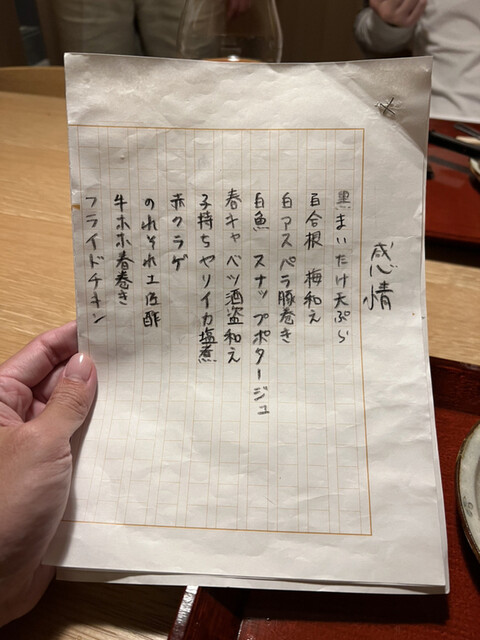 感情
黒まいたけ天ぷら
百合根 梅和え
白アスパラ豚巻き
白魚 スナップポタージュ
春キャベツ酒盗和え
子持ちヤリイカ塩煮
赤クラゲ
のれそれ土佐酢
牛ホホ春巻き
フライドチキン